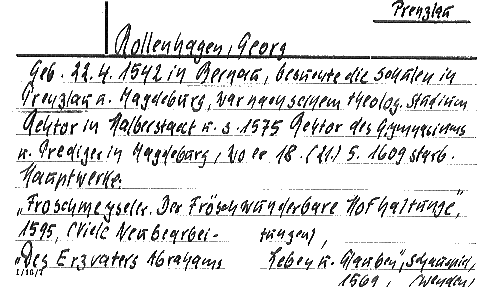 Prenzlau
Rollenhagen, Georg
Geb. 22.4. 1542 in Bernau, besuchte die Schulen in
Prenzlau u. Magdeburg, war nach seinem theolog. Studium
Rektor in Halberstadt u. s. 1575 Rektor des Gymnasiums
u. Prediger in Magdeburg, wo er 18. (21.) 5. 1609 starb.
Hauptwerke:
„Froschmeyseler. Der Frösch wunderbare Hofhaltunge",
1595, (Viele Neubearbei- tungen),
„Des Erzvaters Abrahams Leben u. Glauben", Schauspiel,
1569, (wenden)